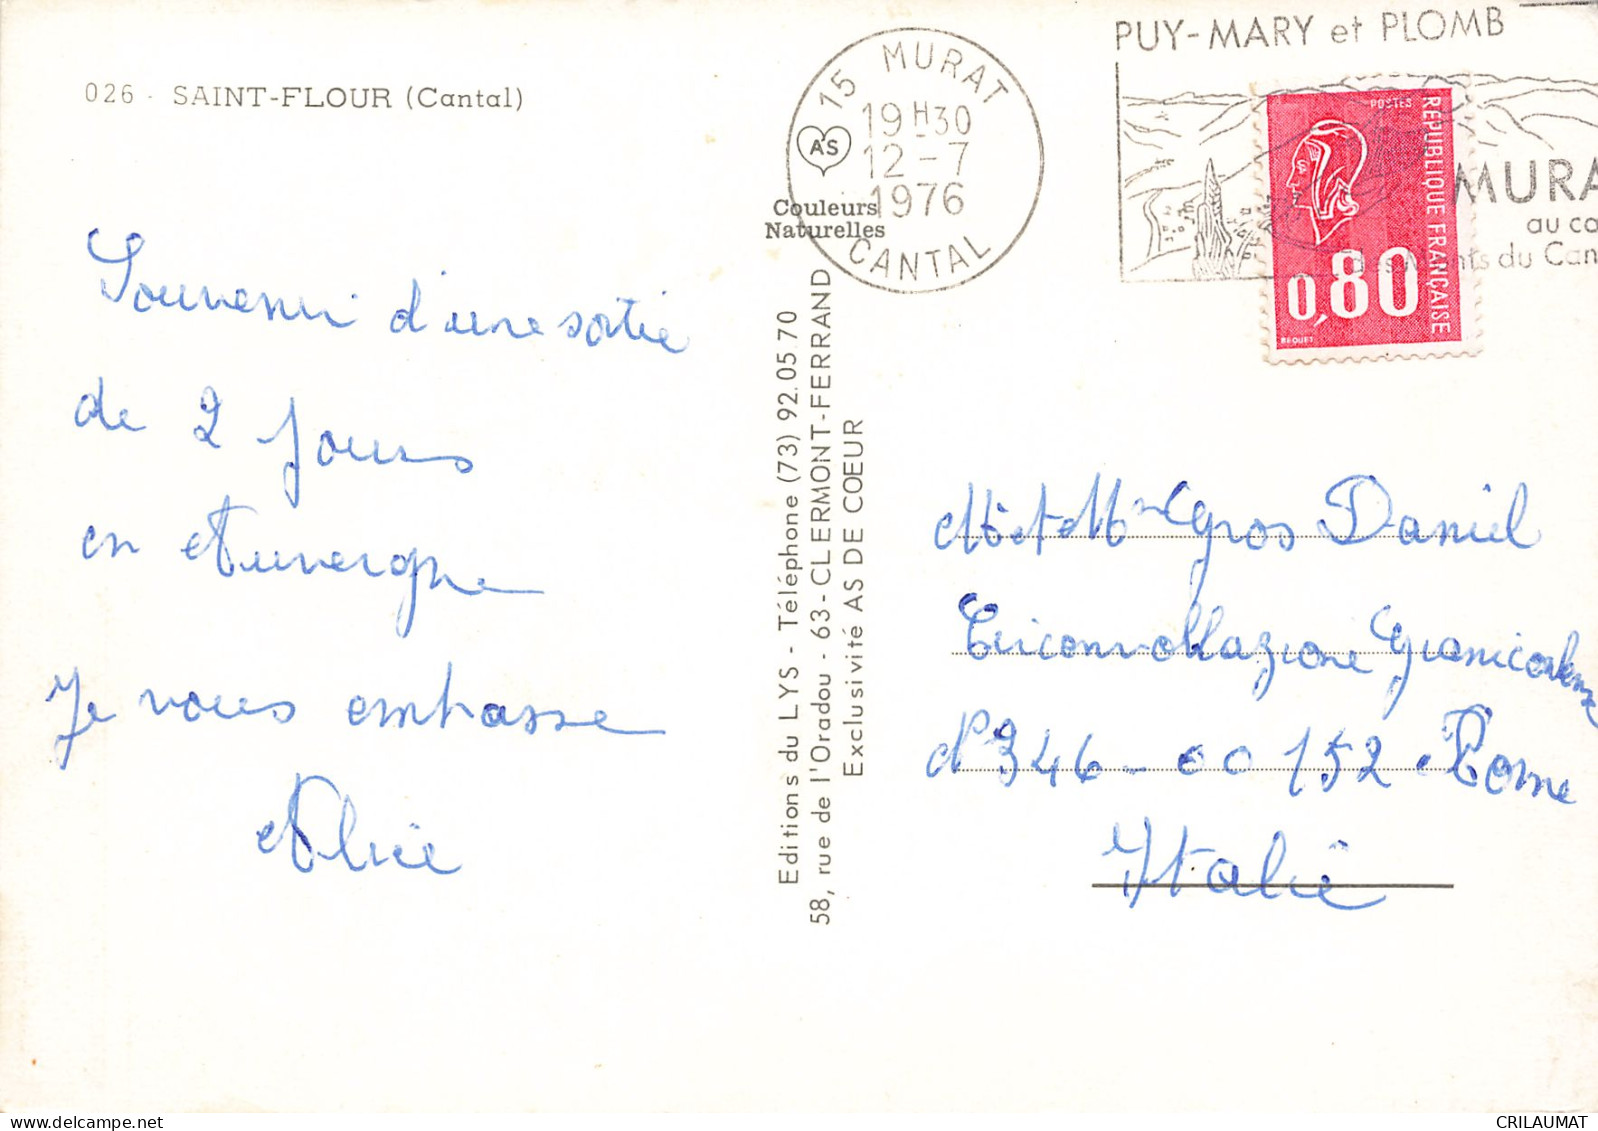 026 - SAINT-FLOUR (Cantal)
Souvenir d'une sortie
de 2 jours
en Auvergne
Je vous embrasse
Alice
AS
Couleurs
Naturelles
Editions du LYS - Téléphone (73) 92.05.70
58, rue de l'Oradou - 63 - CLERMONT-FERRAND
Exclusivité AS DE COEUR
15 MURAT
19H30
12-7
1976
CANTAL
PUY-MARY et PLOMB
MURA
au co
des Monts du Can
POSTES
REPUBLIQUE FRANÇAISE
0,80
BEQUET
Mr et Mme Gros Daniel
Circonvallazione Gianicolense
N° 346 - 00 152 Rome
Italie
CRILAUMAT